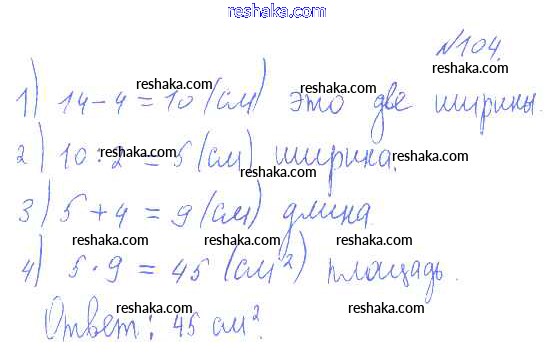 reshaka.com
№104.
reshaka.com
1) 14-4=10 (см) это две ширины.
reshaka.com reshaka.com reshaka.com
2) 10:2=5 (см) ширина.
reshaka.com reshaka.com
3) 5+4=9 (см) длина
reshaka.com reshaka.com reshaka.com
4) 5·9=45 (см²) площадь.
reshaka.com reshaka.com
Ответ: 45 см².